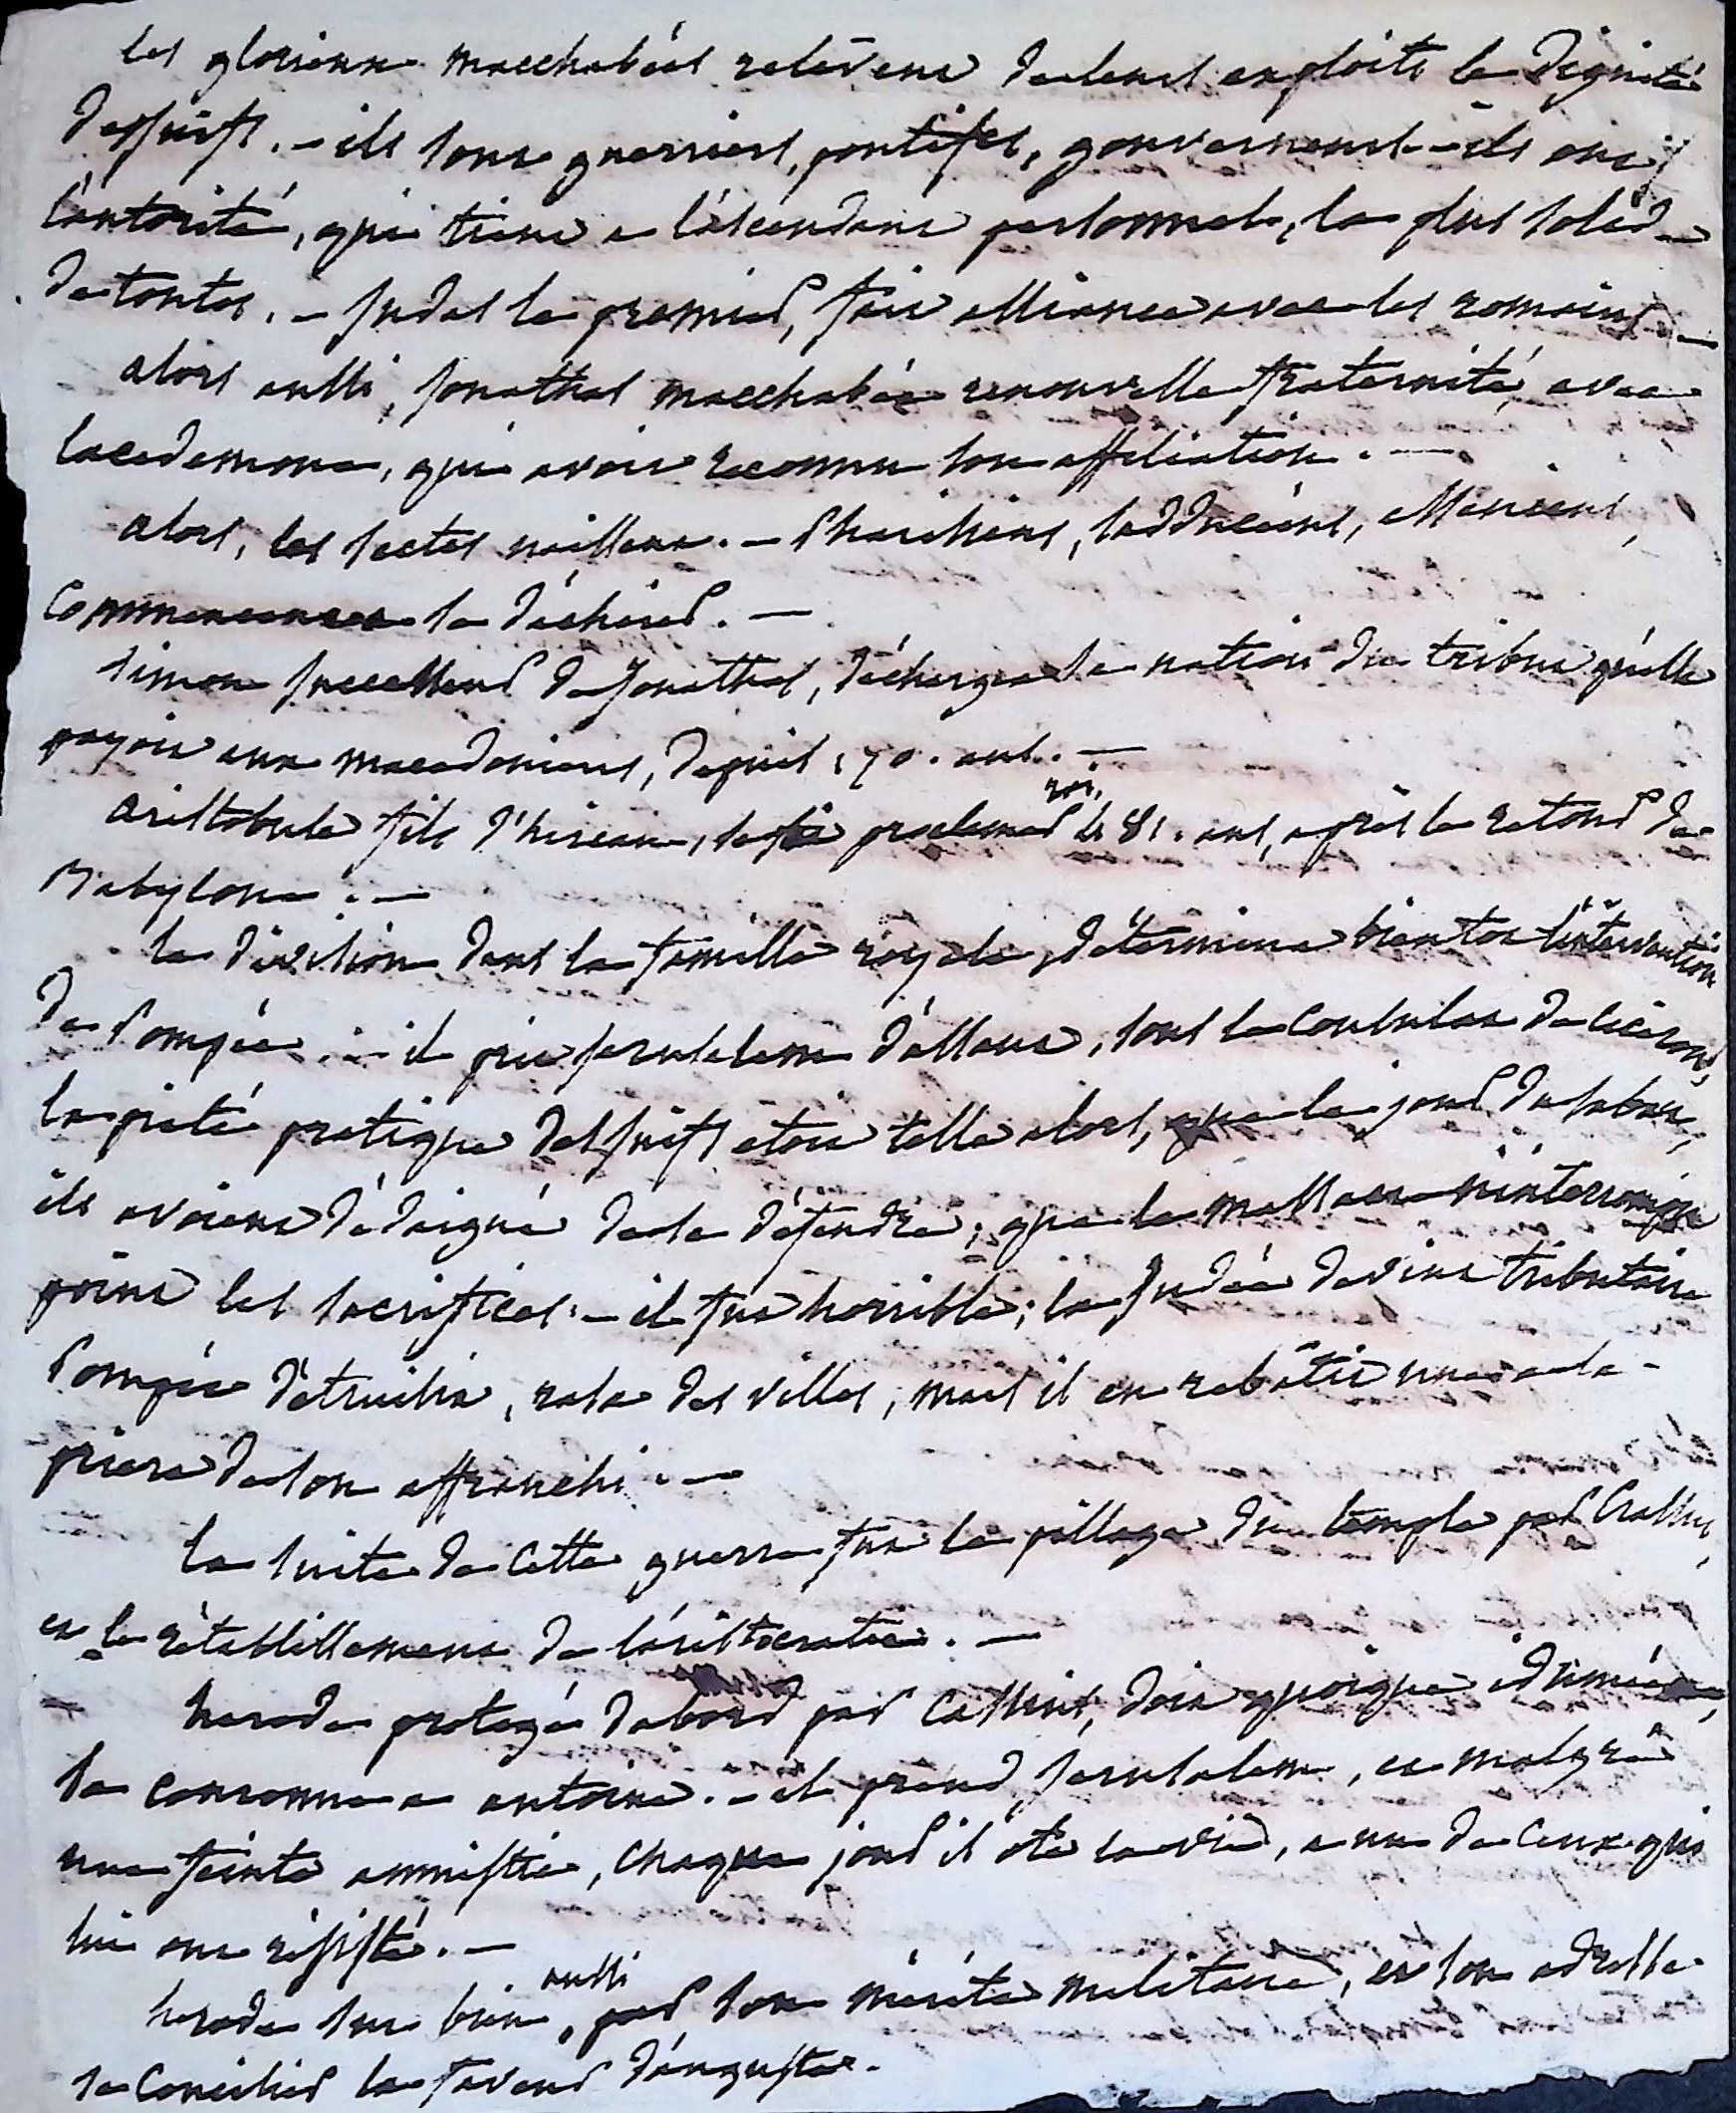 les glorieux macchabées relèvent de leurs exploits la dignité
des juifs. - ils sont guerriers, pontifes, gouverneurs - ils ont
l'autorité, qui tient a l'ascendant personnel, la plus solide
de toutes. - judas le premier, fait alliance avec les romains -
alors aussi, jonathas macchabée renouvelle fraternité, avec
lacedemone, qui avoit reconnu son affiliation. -
alors, les sectes naissent. - Pharisiens, sadducéens, esseniens,
commencent a se déchirer. -
simon successeur de jonathas, décharge la nation du tribut qu'elle
payoit aux macedoniens, depuis 170. ans. -
aristobule fils d'hircan, se fit proclamer roi, 481. ans, après le retour de
Babylone. -
la division dans la famille royale, détermine bientot l'intervention
de Pompée. - il prit jerusalem d'assaut, sous le consulat de ciceron,
la piété pratique des juifs etoit telle alors, que le jour du sabat,
ils avoient dédaigné de se défendre; que le massacre n'interrompit
point les sacrifices. - il fut horrible; la judée devint tributaire
Pompée détruisit, rasa des villes, mais il en rebâtit une a la
priere de son affranchi. -
la suite de cette guerre fut le pillage du temple par Crassus,
et le rétablissement de l'aristocratie. -
herode protégé d'abord par Cassius, doit quoique iduméen,
sa couronne a antoine. - il prend jerusalem, et malgré
une feinte amnistie, chaque jour il ote la vie, a un de ceux qui
lui ont résisté. -
herode sut bien aussi, par son mérite militaire, et son adresse
se concilier la faveur d'auguste.